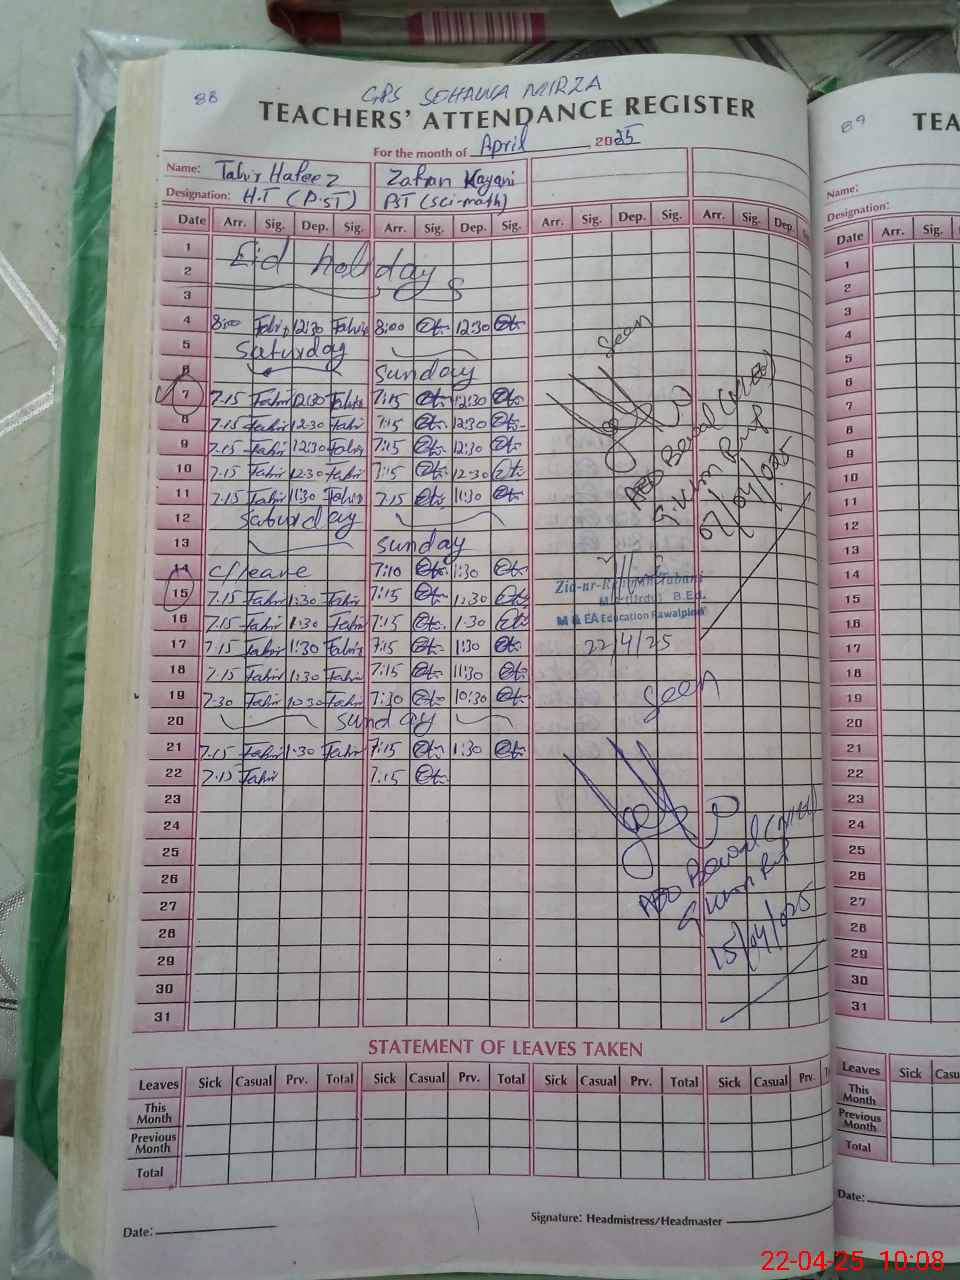 88
GPS SEHALWA MIRZA
TEACHERS' ATTENDANCE REGISTER
For the month of April 2025
Name: Tahir Hafeez Zafran Kayani
Designation: H.T (P.ST) PST (Sci-math)
Date Arr. Sig. Dep. Sig. Arr. Sig. Dep. Sig. Arr. Sig. Dep. Sig. Arr. Sig. Dep.
1 Eid holidays
2
3
4 8:00 Tahir 12:30 Tahir 8:00 12:30
5 Saturday
6 Sunday
7 7.15 Tahir 12:30 Tahir 7:15 12:30
8 7.15 Tahir 12.30 Tahir 7:15 12:30
9 7.15 Tahir 12:30 Tahir 7:15 12:30
10 7.15 Tahir 12.30 Tahir 7:15 12:30
11 7.15 Tahir 11:30 Tahir 7.15 11:30
12 Saturday
13 Sunday
14 C/leave 7:10 1:30
15 7.15 Tahir 1:30 Tahir 7:15 1:30
16 7.15 Tahir 1.30 Tahir 7:15 1.30
17 7.15 Tahir 1:30 Tahir 7:15 1:30
18 7.15 Tahir 11:30 Tahir 7:15 11:30
19 7.30 Tahir 10:30 Tahir 7:30 10:30
20 Sunday
21 7.15 Tahir 1.30 Tahir 7:15 1:30
22 7.15 Tahir 7.15
23
24
25
26
27
28
29
30
31
Seen
AEO Bewal (MEE)
G.Khan Rwp
07/04/2025
M & EA Education Rawalpindi
22/4/25
Seen
AEO Bewal (MEE)
G.Khan Rwp
15/04/2025
STATEMENT OF LEAVES TAKEN
Leaves Sick Casual Prv. Total Sick Casual Prv. Total Sick Casual Prv. Total Sick Casual Prv.
This Month
Previous Month
Total
Date:
Signature: Headmistress/Headmaster
89
TEA
Name:
Designation:
Date Arr. Sig.
1
2
3
4
5
6
7
8
9
10
11
12
13
14
15
16
17
18
19
20
21
22
23
24
25
26
27
28
29
30
31
Leaves Sick
This Month
Previous Month
Total
Date:
22-04-25 10:08